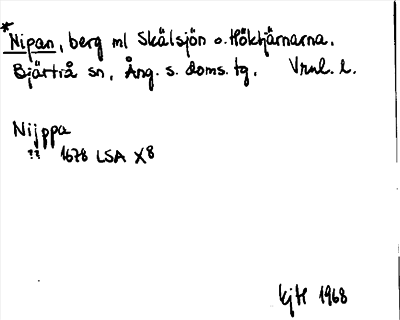 *Nipan, berg ml Skälsjön o. Hökhjärnarna.
Bjärtrå sn, Ång. s. doms. tg. Vrnl. l.
Nijppa
?? 1678 LSA X8
kjH 1968